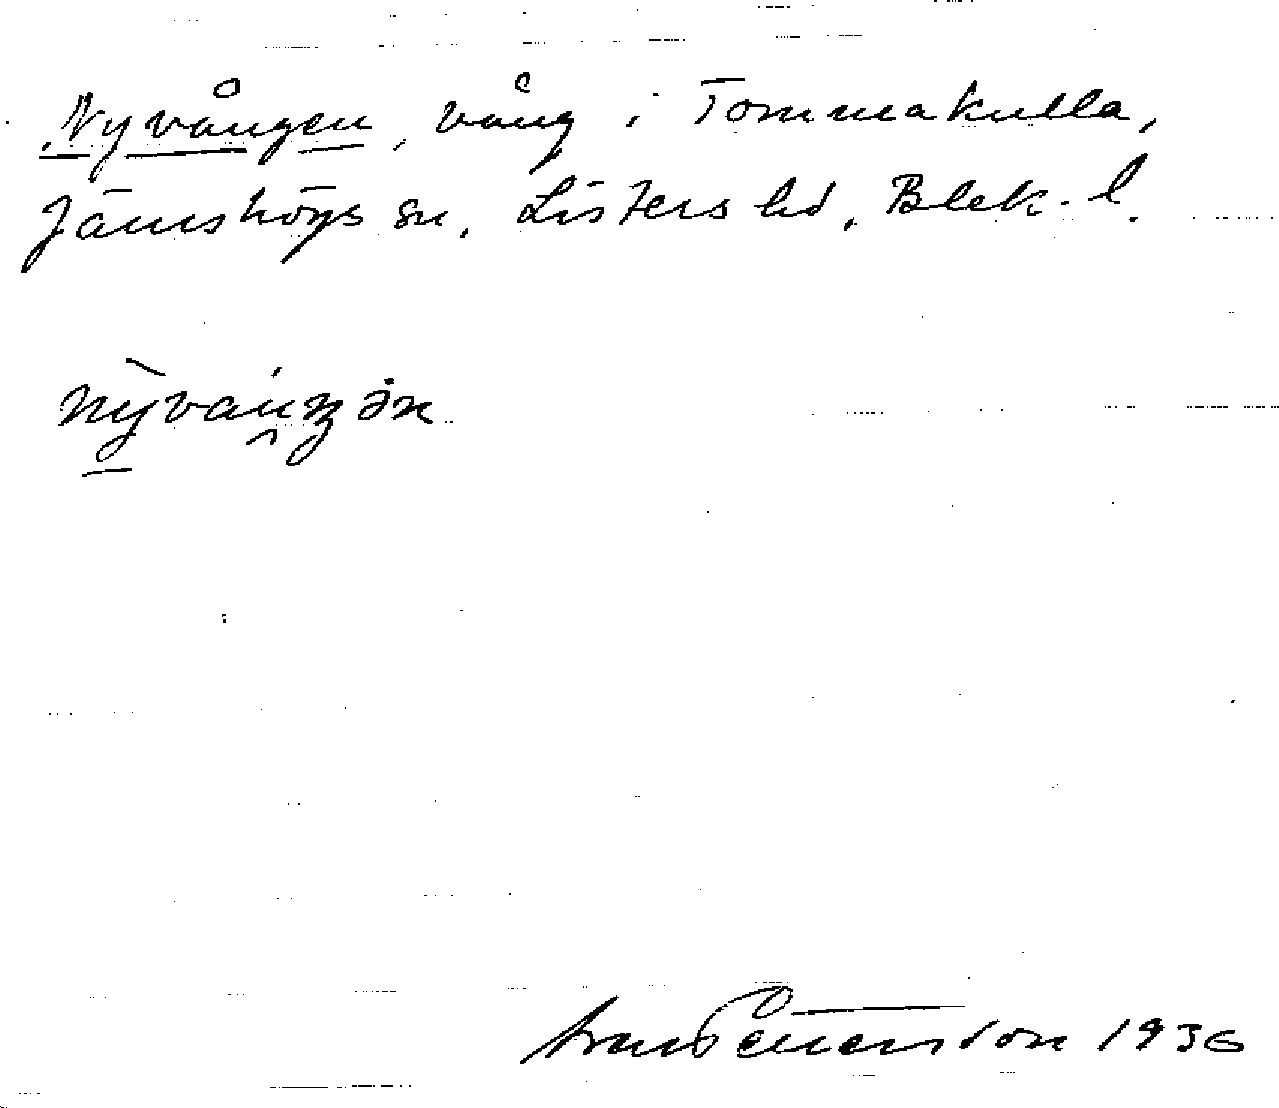 Nyvången, vång i Tommakulla,
Jämshögs sn, Listers hd, Blek. l.
Pettersson 1936